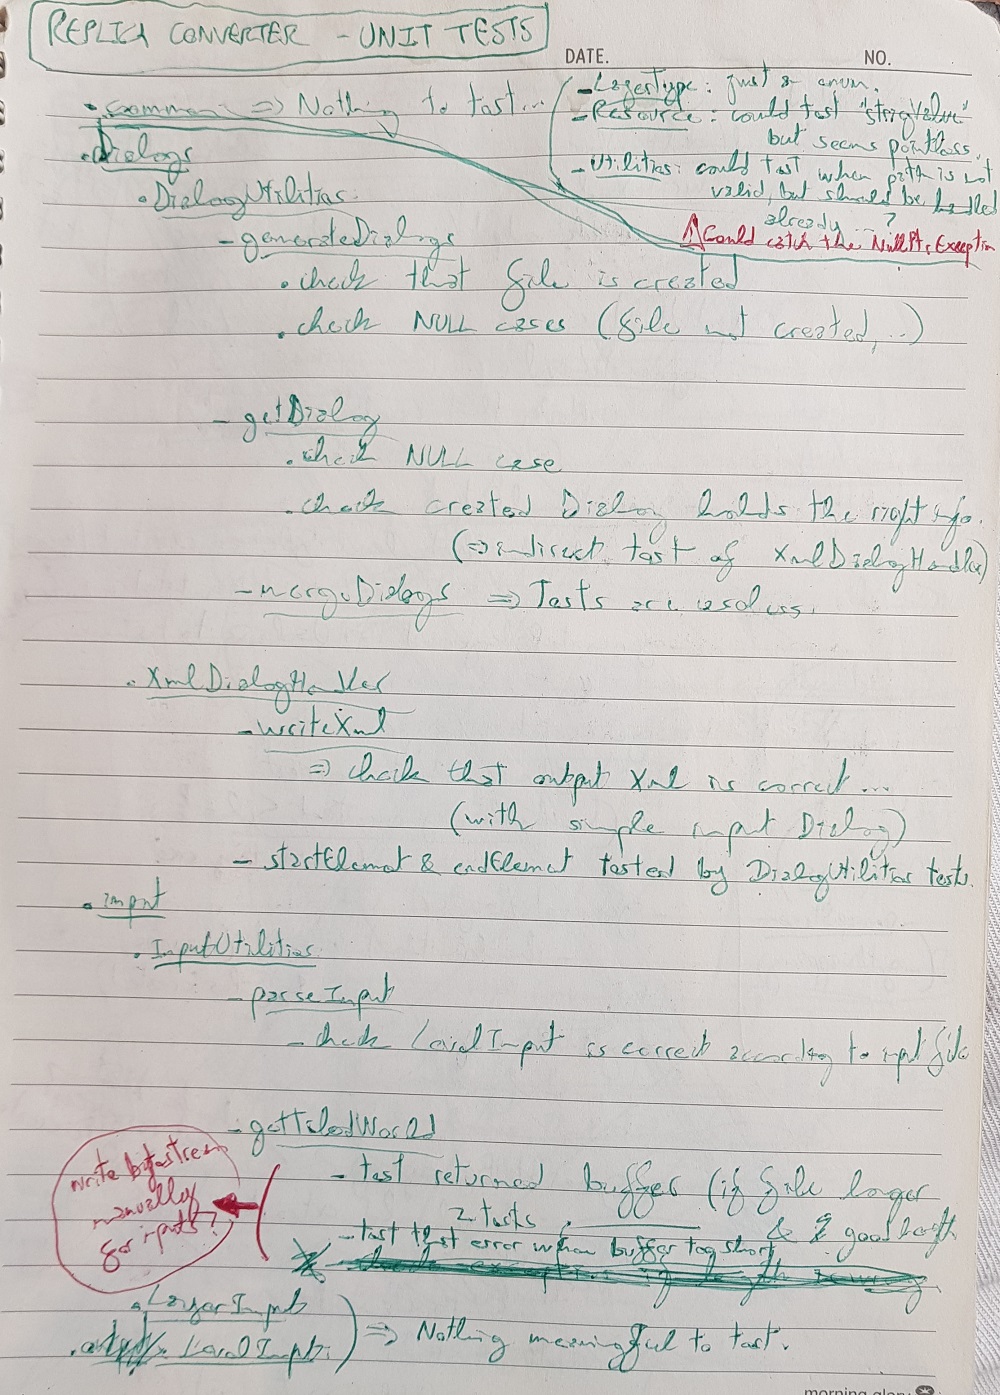 REPLICA CONVERTER - UNIT TESTS
DATE.
NO.
. common => Nothing to test...
- LayerType: just an enum.
- Resource: could test "stringValue"
but seems pointless.
- Utilities: could test when path is not
valid, but should be handled
already ...?
Could catch the NullPtrException
. Dialogs
. DialogUtilities
- generateDialogs
. check that file is created
. check NULL cases (file not created, ...)
- getDialog
. check NULL case
. check created Dialog holds the right info.
(=> indirect test of XmlDialogHandler)
- mergeDialogs => Tests are useless.
. XmlDialogHandler
- writeXml
=> check that output Xml is correct...
(with simple input Dialog)
- startElement & endElement tested by DialogUtilities tests.
. input
. InputUtilities
- parseInput
- check LevelInput is correct according to input file
- getTiledWorld
- test returned buffer (if file longer
& good length
2 tests
- test that error when buffer too short
write bytestream
manually
for inputs?
. LayerInput
. LevelInput
) => Nothing meaningful to test.
morning glory